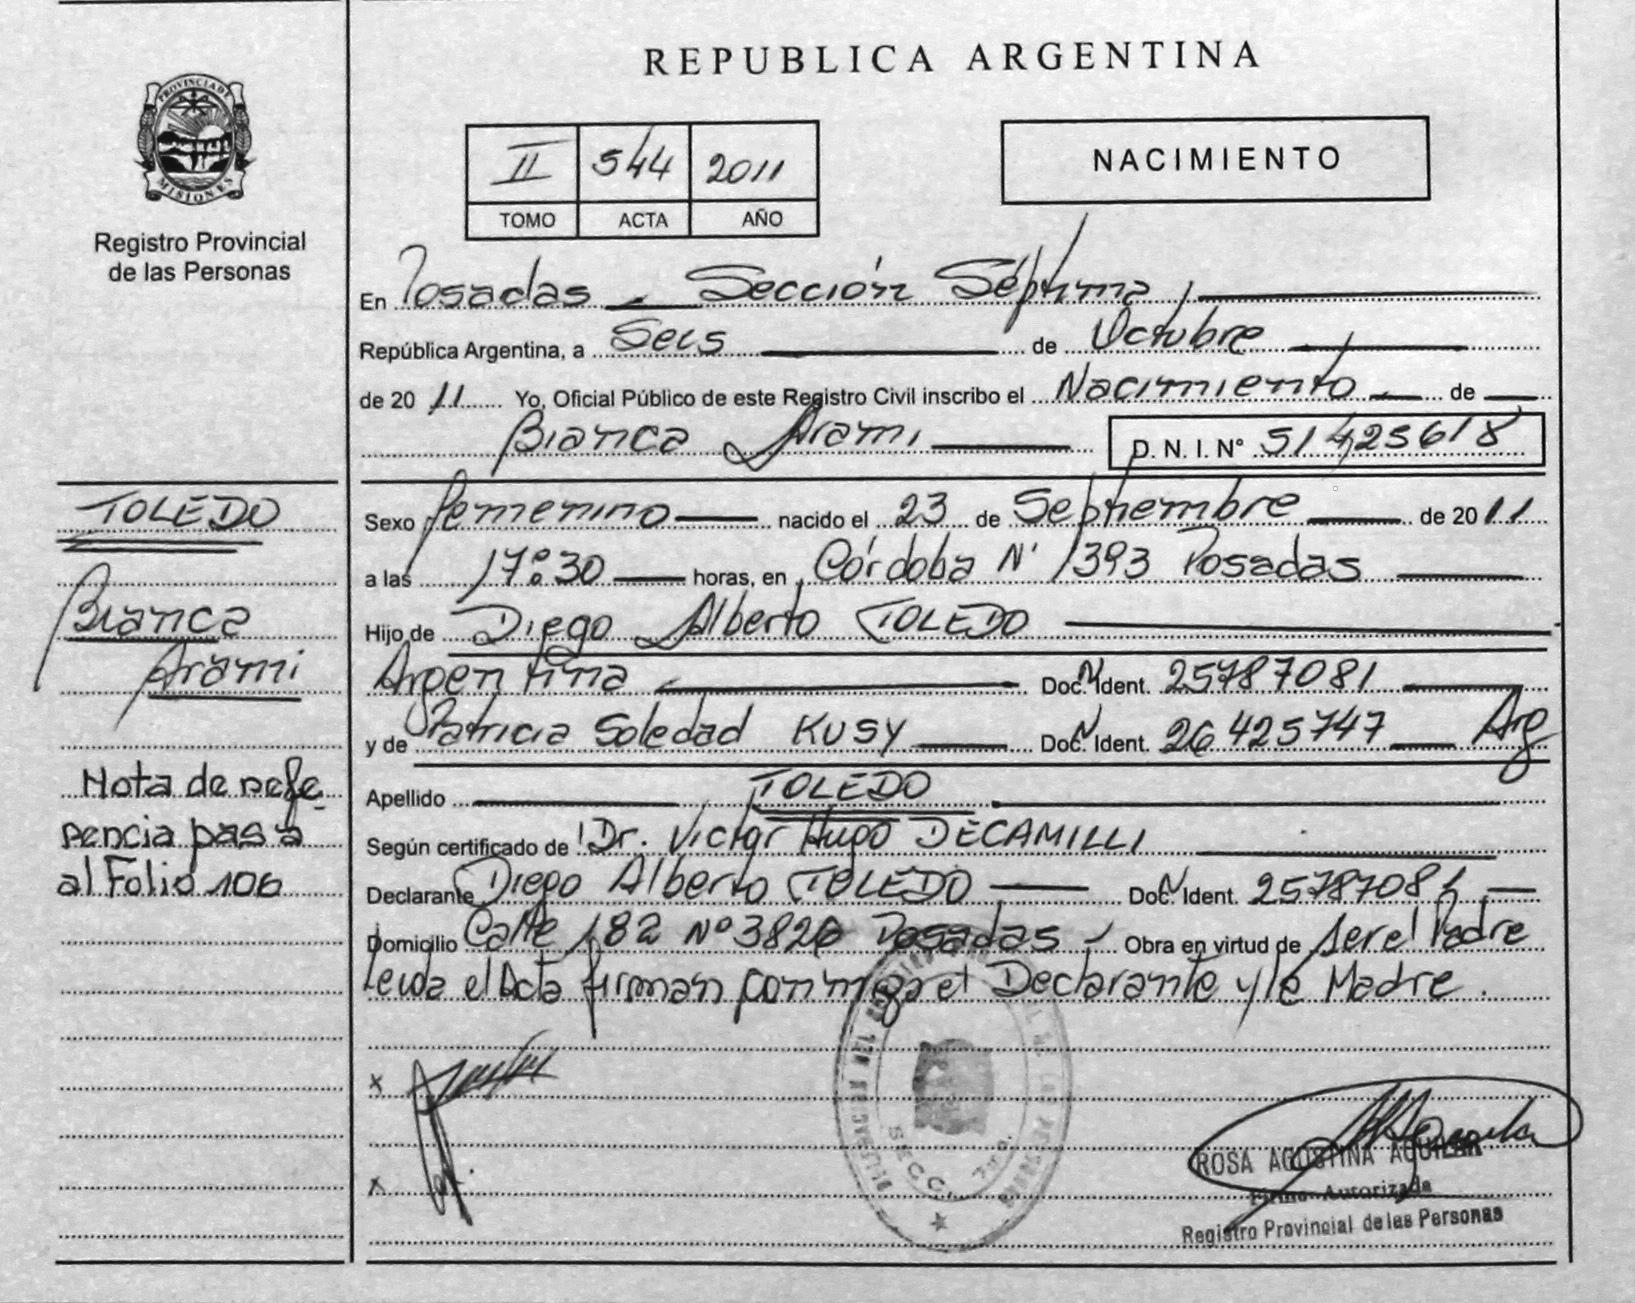 REPUBLICA ARGENTINA
PROVINCIA DE
MISIONES
Registro Provincial
de las Personas
II 544 2011
TOMO ACTA AÑO
NACIMIENTO
En Posadas Sección Séptima
República Argentina, a Seis de Octubre
de 2011 Yo, Oficial Público de este Registro Civil inscribo el Nacimiento de
Bianca Arami D. N. I. N° 51425618
TOLEDO
Bianca
Arami
Nota de refe-
rencia pasa
al Folio 106
Sexo femenino nacido el 23 de Septiembre de 2011
a las 17:30 horas, en Córdoba N° 1393 Posadas
Hijo de Diego Alberto TOLEDO
Argentina Doc. Ident. 25787081
y de Patricia Soledad KUSY Doc. Ident. 26425747 Arg
Apellido TOLEDO
Según certificado de Dr. Victor Hugo DECAMILLI
Declarante Diego Alberto TOLEDO Doc. Ident. 25787081
Domicilio Calle 182 N° 3826 Posadas Obra en virtud de ser el Padre
Leída el Acta firman conmigo el Declarante y la Madre.
x
x
SECC. 7ma.
ROSA AGOSTINA AGUILAR
Firma Autorizada
Registro Provincial de las Personas